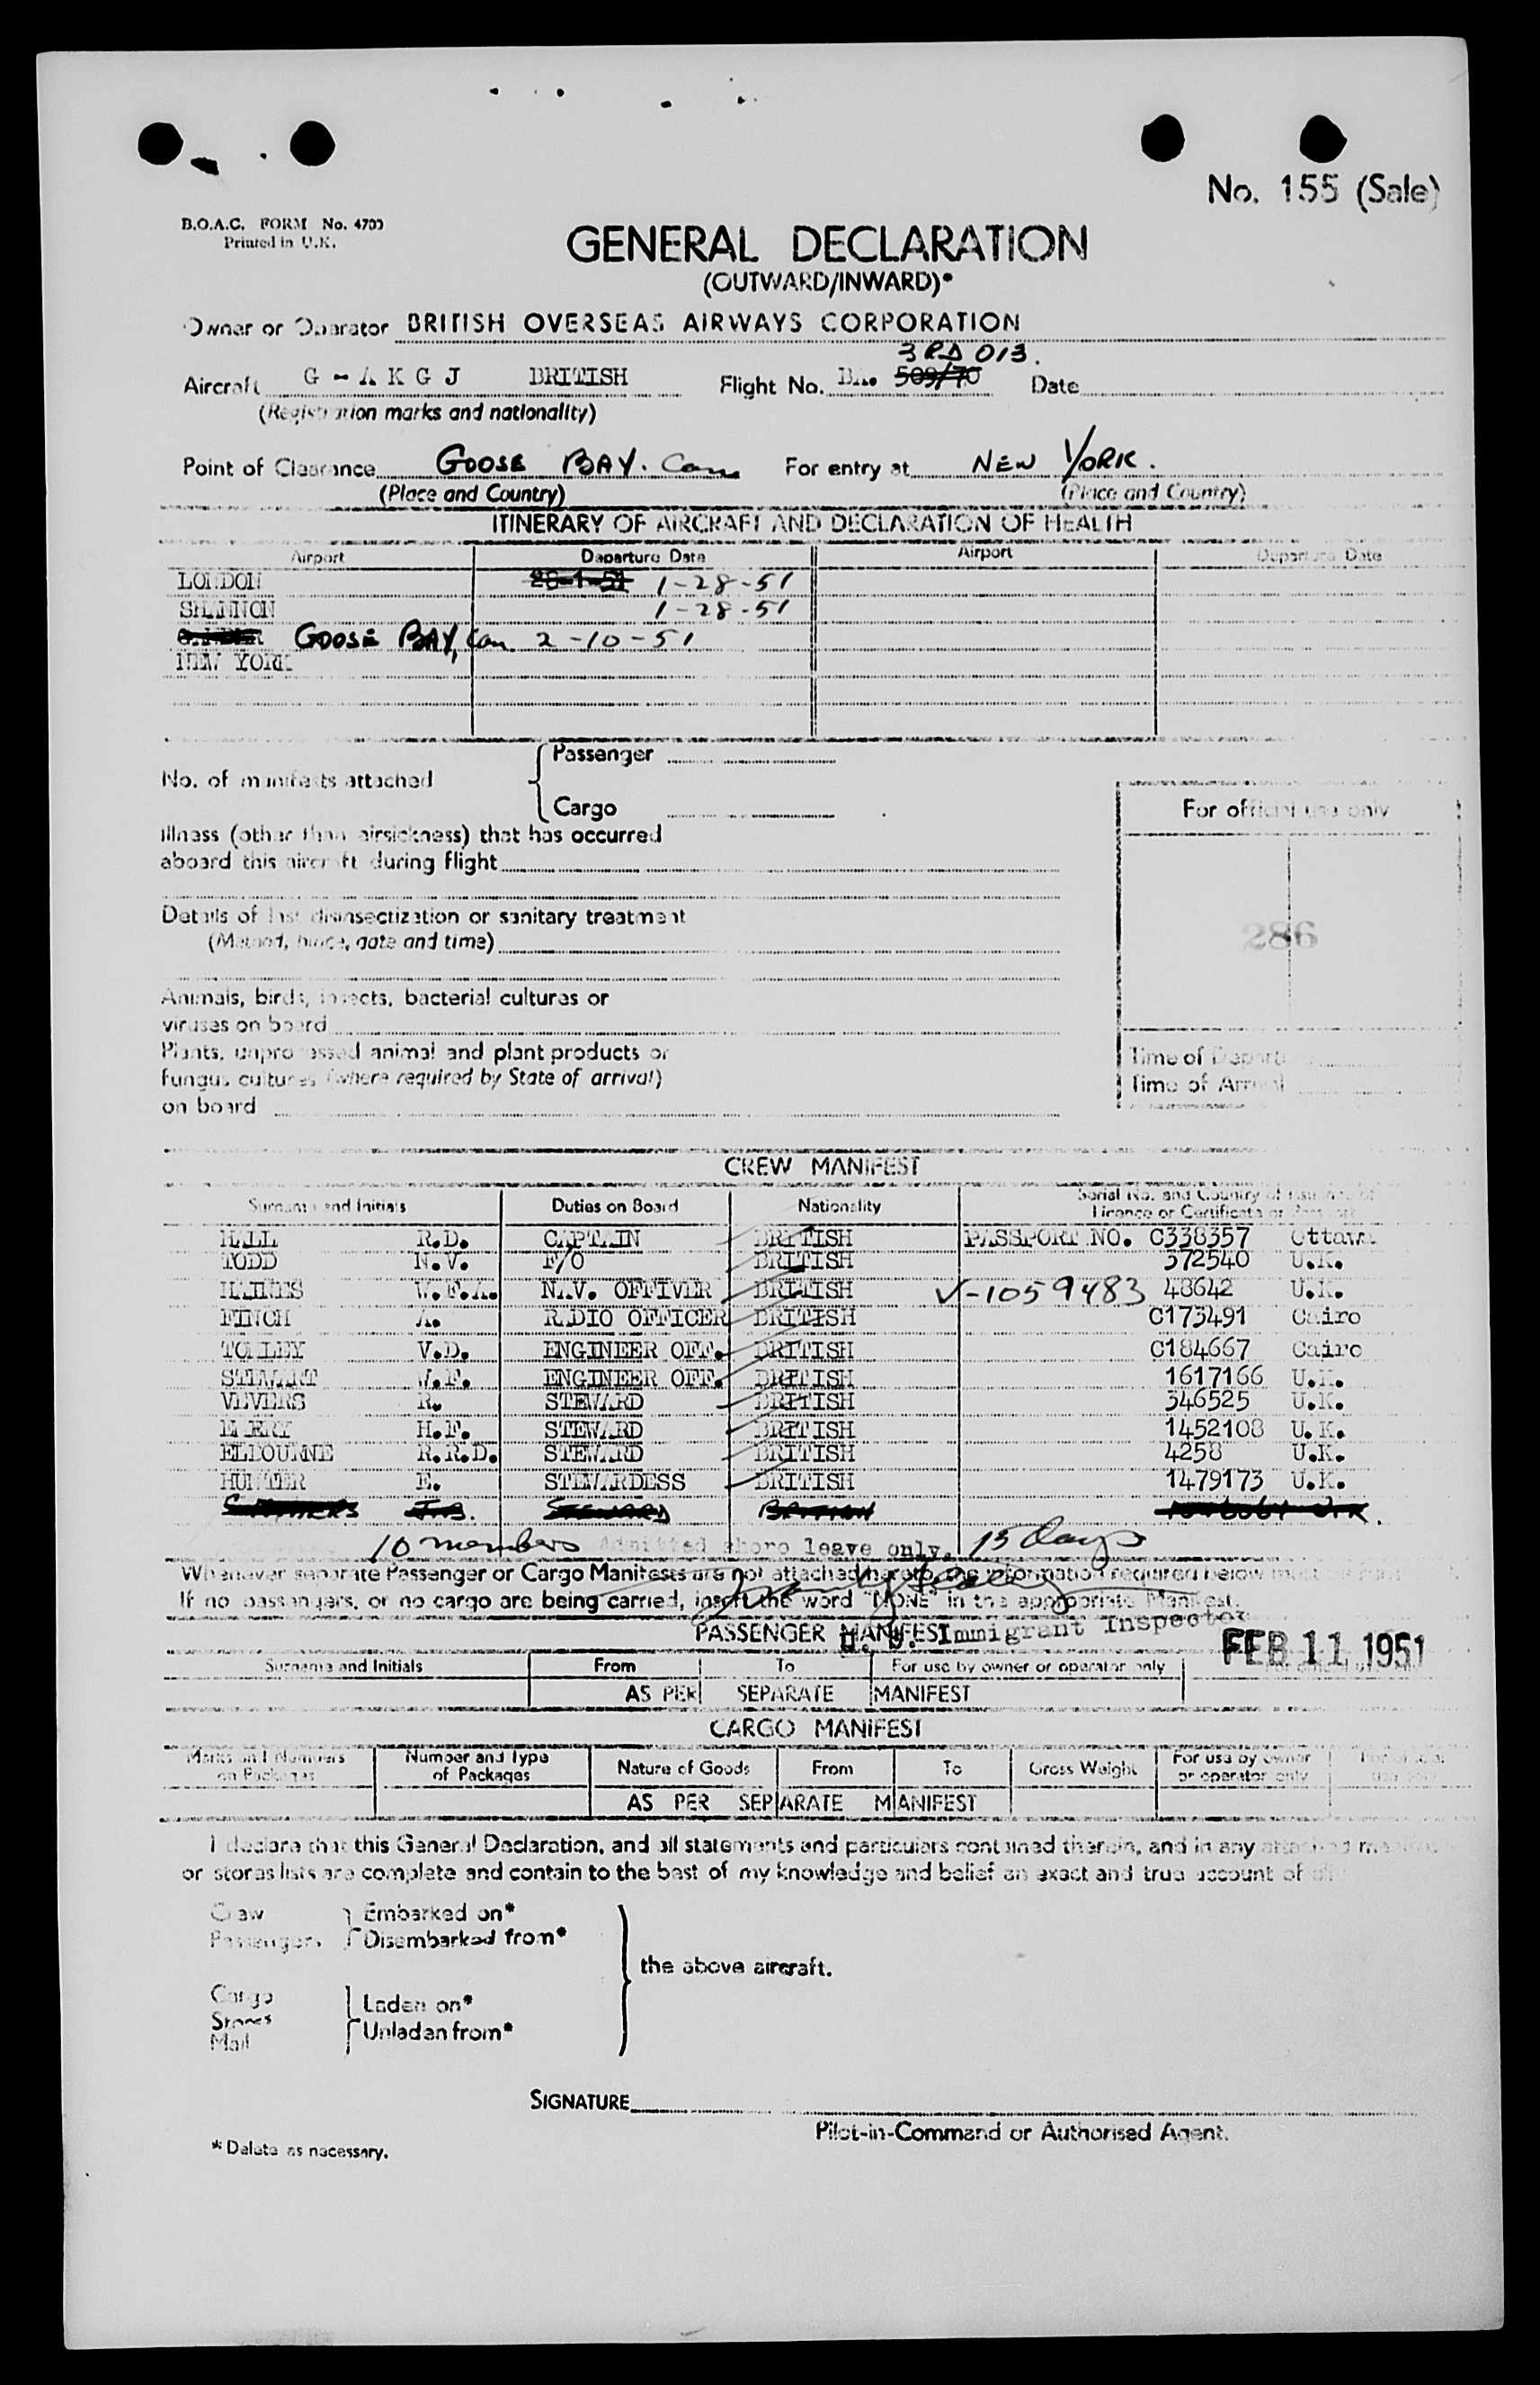 No. 155 (Sale)
B.O.A.C. FORM No. 4700
Printed in U.K.
GENERAL DECLARATION
(OUTWARD/INWARD)*
Owner or Operator BRITISH OVERSEAS AIRWAYS CORPORATION
3RD 013.
Aircraft G - A K G J BRITISH Flight No. BA. 509/70 Date
(Registration marks and nationality)
Point of Clearance GOOSE BAY. Can For entry at NEW YORK.
(Place and Country) (Place and Country)
ITINERARY OF AIRCRAFT AND DECLARATION OF HEALTH
Airport Departure Date Airport Departure Date
LONDON 28-1-51 1-28-51
SHANNON 1-28-51
GOOSE BAY, Can 2-10-51
NEW YORK
Passenger
No. of manifests attached
Cargo
Illness (other than airsickness) that has occurred
aboard this aircraft during flight
Details of last disinsectization or sanitary treatment
(Method, place, date and time)
Animals, birds, insects, bacterial cultures or
viruses on board
Plants, unprocessed animal and plant products or
fungus cultures (where required by State of arrival)
on board
For official use only
286
Time of Departure
Time of Arrival
CREW MANIFEST
Surname and Initials Duties on Board Nationality Serial No. and Country of Issuance of
Licence or Certificate or Passport
HALL R.D. CAPTAIN BRITISH PASSPORT NO. C338357 Ottawa
TODD N.V. F/O BRITISH 372540 U.K.
HAINES W.F.A. NAV. OFFIVER BRITISH V-1059483 48642 U.K.
FINCH A. RADIO OFFICER BRITISH C173491 Cairo
V.D. ENGINEER OFF. BRITISH C184667 Cairo
STEWART W.F. ENGINEER OFF. BRITISH 1617166 U.K.
VEVERS R. STEWARD BRITISH 346525 U.K.
H.F. STEWARD BRITISH 1452108 U.K.
ELBOURNE R.R.D. STEWARD BRITISH 4258 U.K.
HUNTER E. STEWARDESS BRITISH 1479173 U.K.
J.B. STEWARD BRITISH
10 members Admitted shore leave only. 15 days
Whenever separate Passenger or Cargo Manifests are not attached hereto, the information required below must
If no passengers, or no cargo are being carried, insert the word "NONE" in the appropriate Manifest.
PASSENGER MANIFEST
U. S. Immigrant Inspector
FEB 11 1951
Surname and Initials From To For use by owner or operator only
AS PER SEPARATE MANIFEST
CARGO MANIFEST
Marks and Numbers on Packages Number and Type of Packages Nature of Goods From To Gross Weight For use by owner or operator only For official use only
AS PER SEPARATE MANIFEST
I declare that this General Declaration, and all statements and particulars contained therein, and in any attached
or stores lists are complete and contain to the best of my knowledge and belief an exact and true account of all
Crew Embarked on*
Passengers Disembarked from*
the above aircraft.
Cargo
Laden on*
Stores
Unladen from*
Mail
SIGNATURE
Pilot-in-Command or Authorised Agent.
* Delete as necessary.